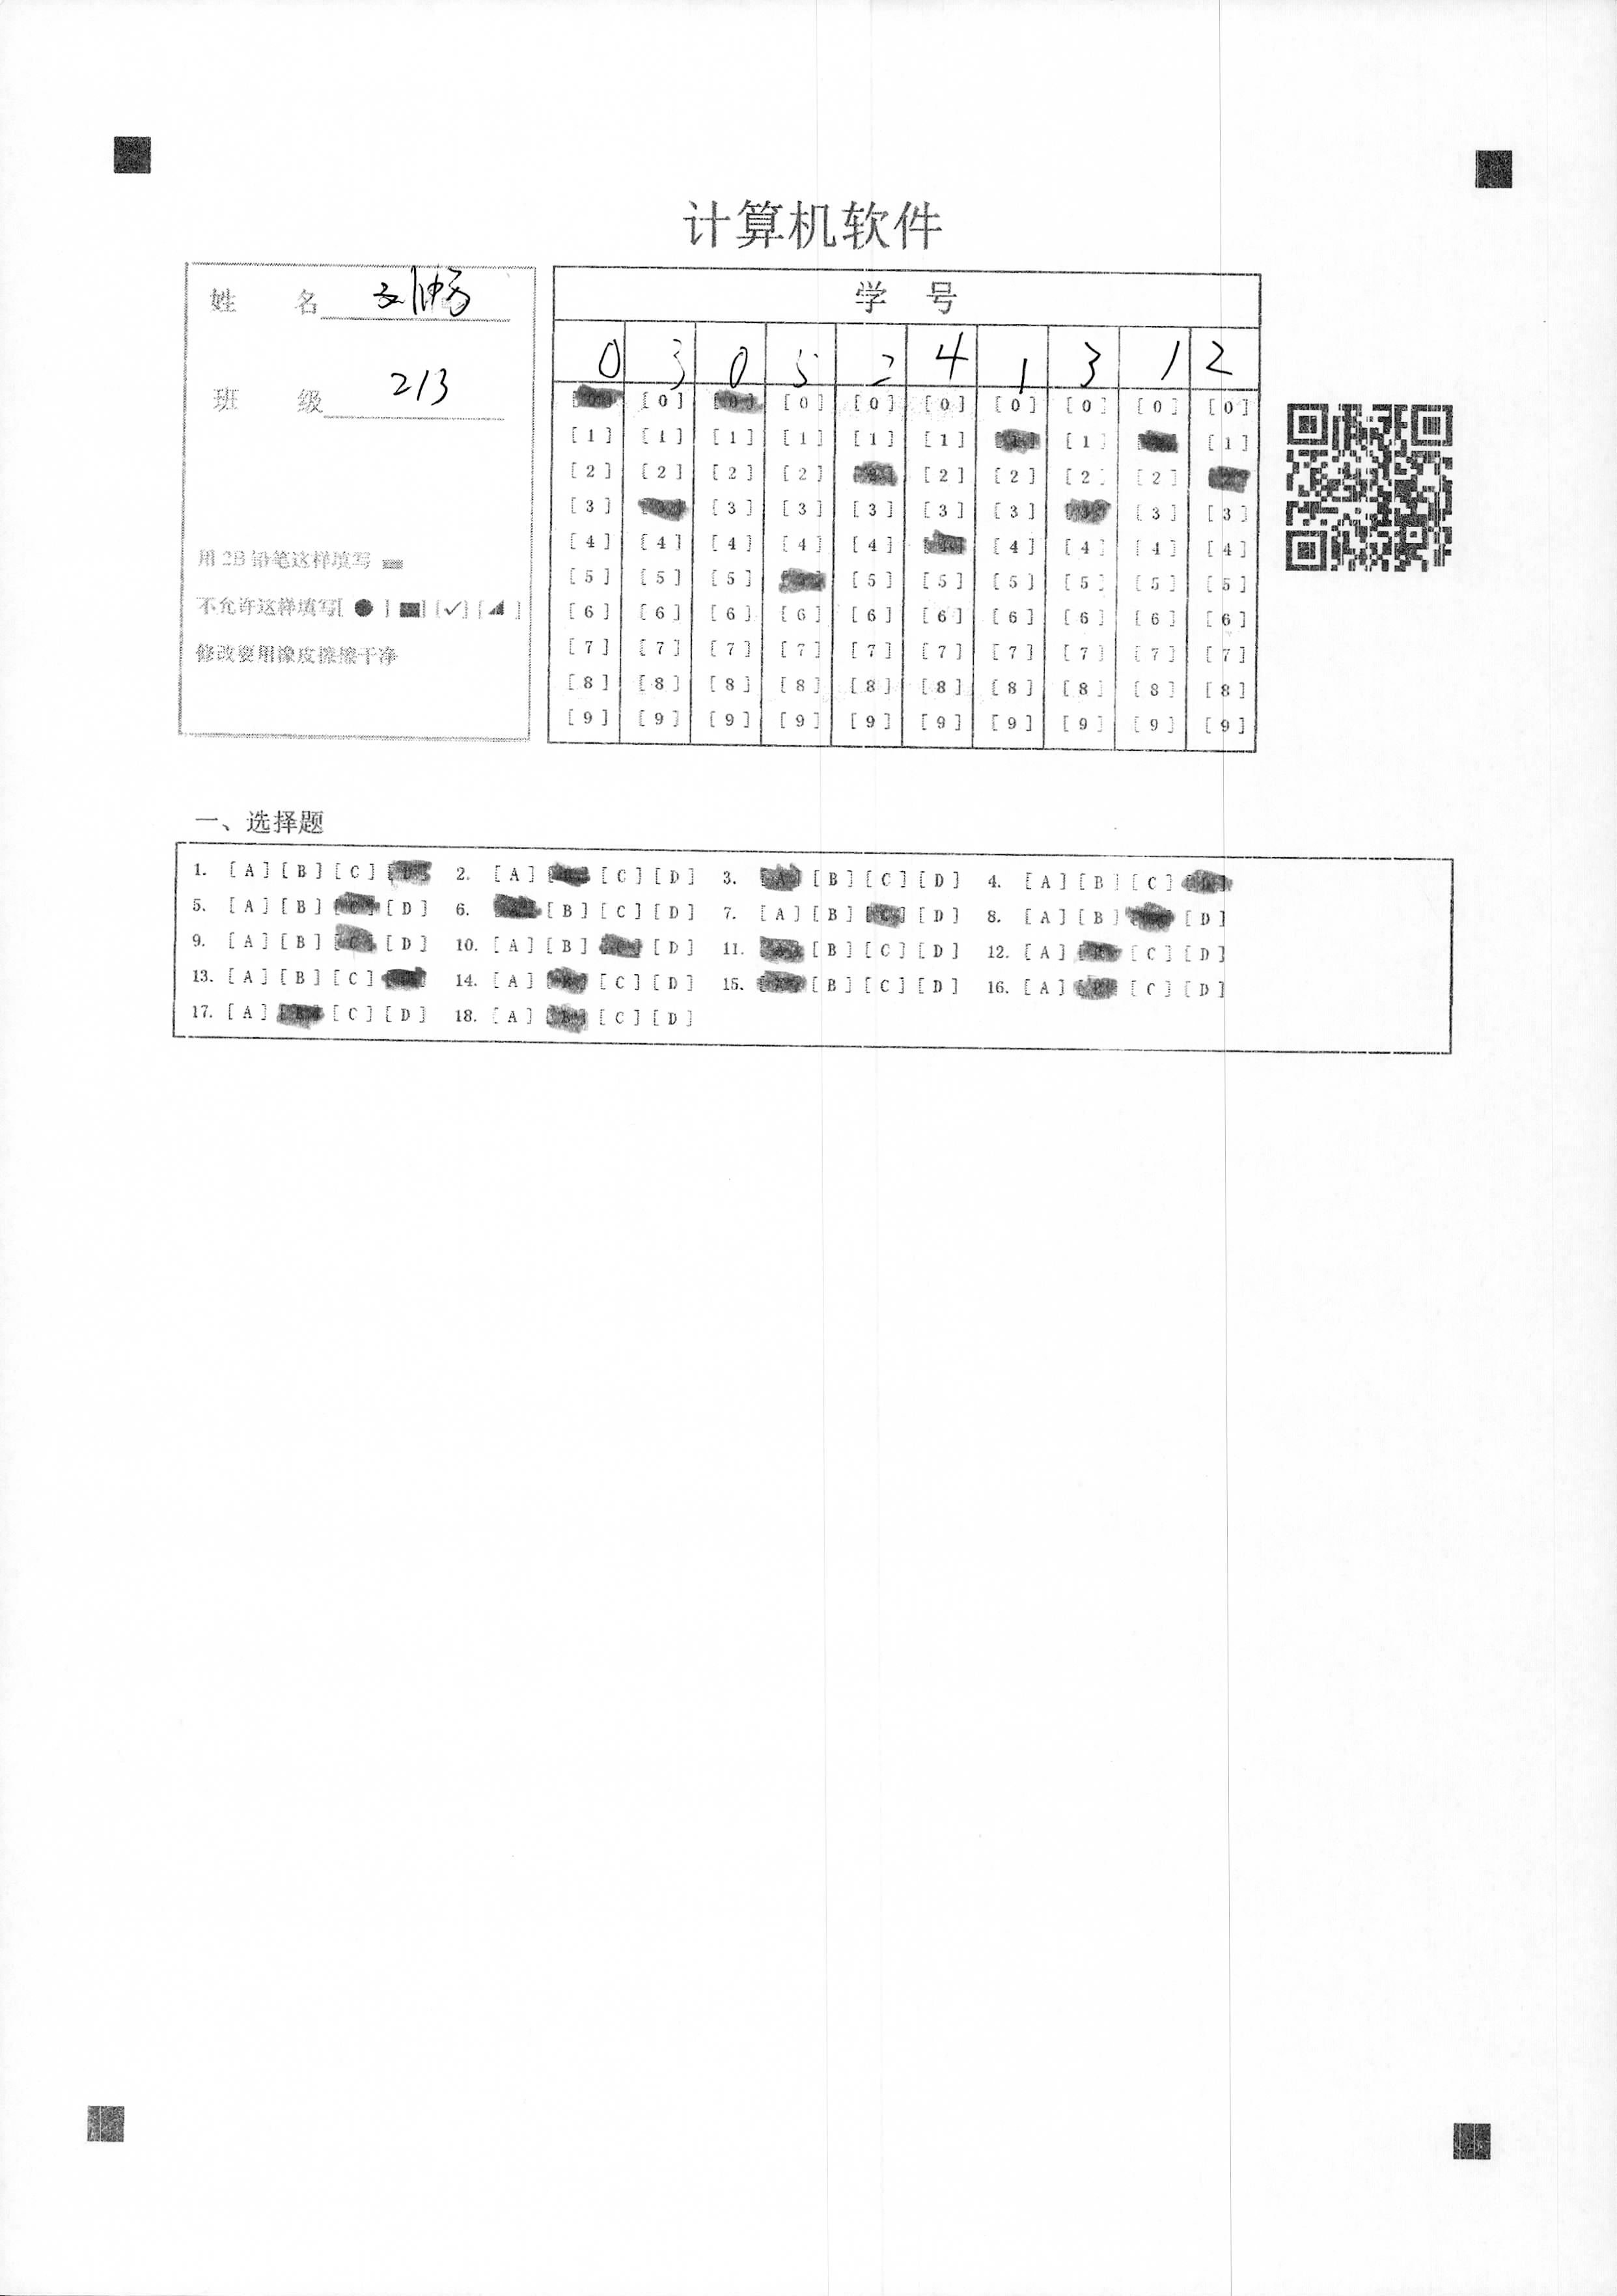 计算机软件
姓 名 刘畅
班 级 213
用2B铅笔这样填写
不允许这样填写[ ● ] [■] [✓] [◢]
修改要用橡皮擦擦干净
学 号
0 3 0 5 2 4 1 3 1 2
[0] [0] [0] [0] [0] [0] [0] [0] [0] [0]
[1] [1] [1] [1] [1] [1] [1] [1] [1] [1]
[2] [2] [2] [2] [2] [2] [2] [2] [2] [2]
[3] [3] [3] [3] [3] [3] [3] [3] [3] [3]
[4] [4] [4] [4] [4] [4] [4] [4] [4] [4]
[5] [5] [5] [5] [5] [5] [5] [5] [5] [5]
[6] [6] [6] [6] [6] [6] [6] [6] [6] [6]
[7] [7] [7] [7] [7] [7] [7] [7] [7] [7]
[8] [8] [8] [8] [8] [8] [8] [8] [8] [8]
[9] [9] [9] [9] [9] [9] [9] [9] [9] [9]
一、选择题
1. [A] [B] [C] [D] 2. [A] [B] [C] [D] 3. [A] [B] [C] [D] 4. [A] [B] [C] [D]
5. [A] [B] [C] [D] 6. [A] [B] [C] [D] 7. [A] [B] [C] [D] 8. [A] [B] [C] [D]
9. [A] [B] [C] [D] 10. [A] [B] [C] [D] 11. [A] [B] [C] [D] 12. [A] [B] [C] [D]
13. [A] [B] [C] [D] 14. [A] [B] [C] [D] 15. [A] [B] [C] [D] 16. [A] [B] [C] [D]
17. [A] [B] [C] [D] 18. [A] [B] [C] [D]